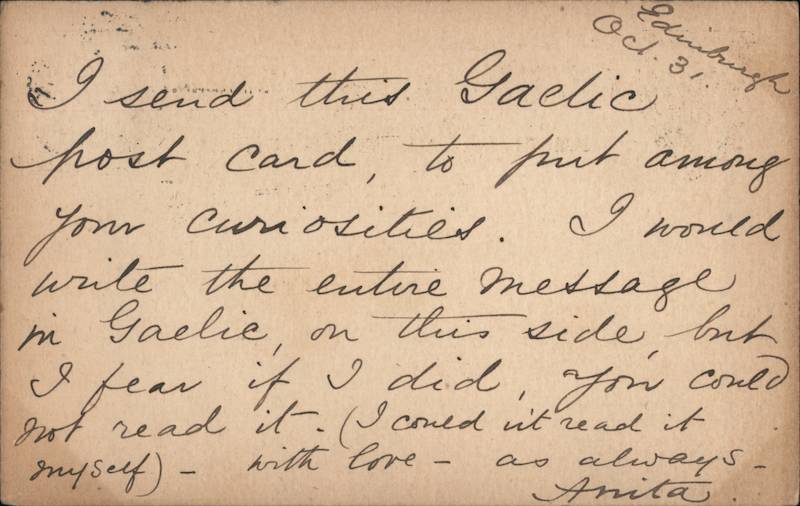 Edinburgh
Oct. 31.
I send this Gaelic
post card, to put among
your curiosities. I would
write the entire message
in Gaelic, on this side, but
I fear if I did, you could
not read it. (I couldn't read it
myself) - with love - as always -
Anita.